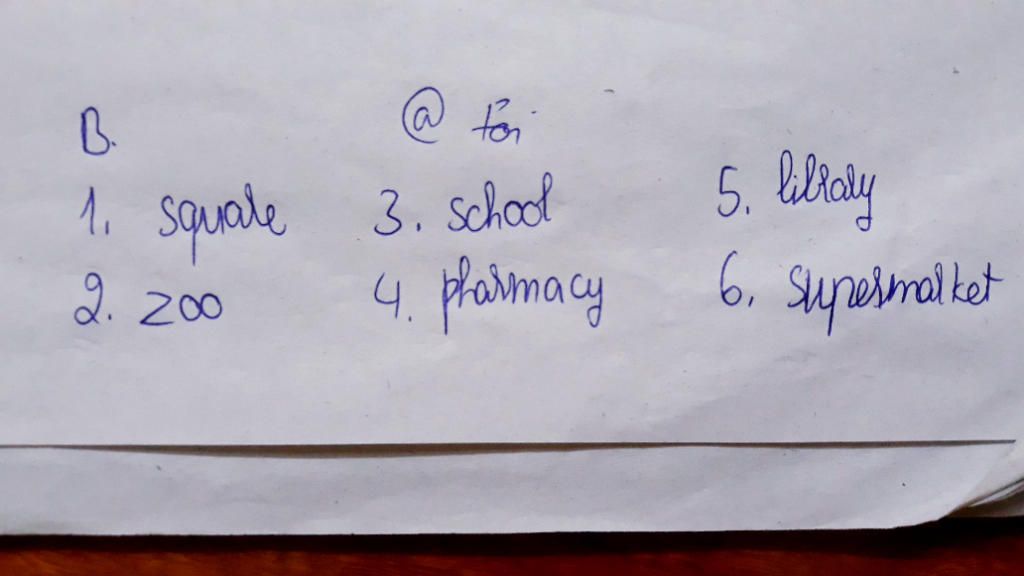 B. @
1. square 3. school 5. library
2. zoo 4. pharmacy 6. supermarket